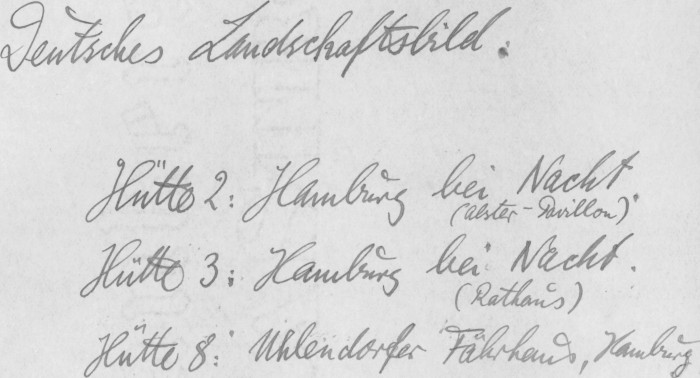 Deutsches Landschaftsbild:
Hütte 2: Hamburg bei Nacht.
(Alster-Pavillon)
Hütte 3: Hamburg bei Nacht.
(Rathaus)
Hütte 8: Uhlendorfer Fährhaus, Hamburg